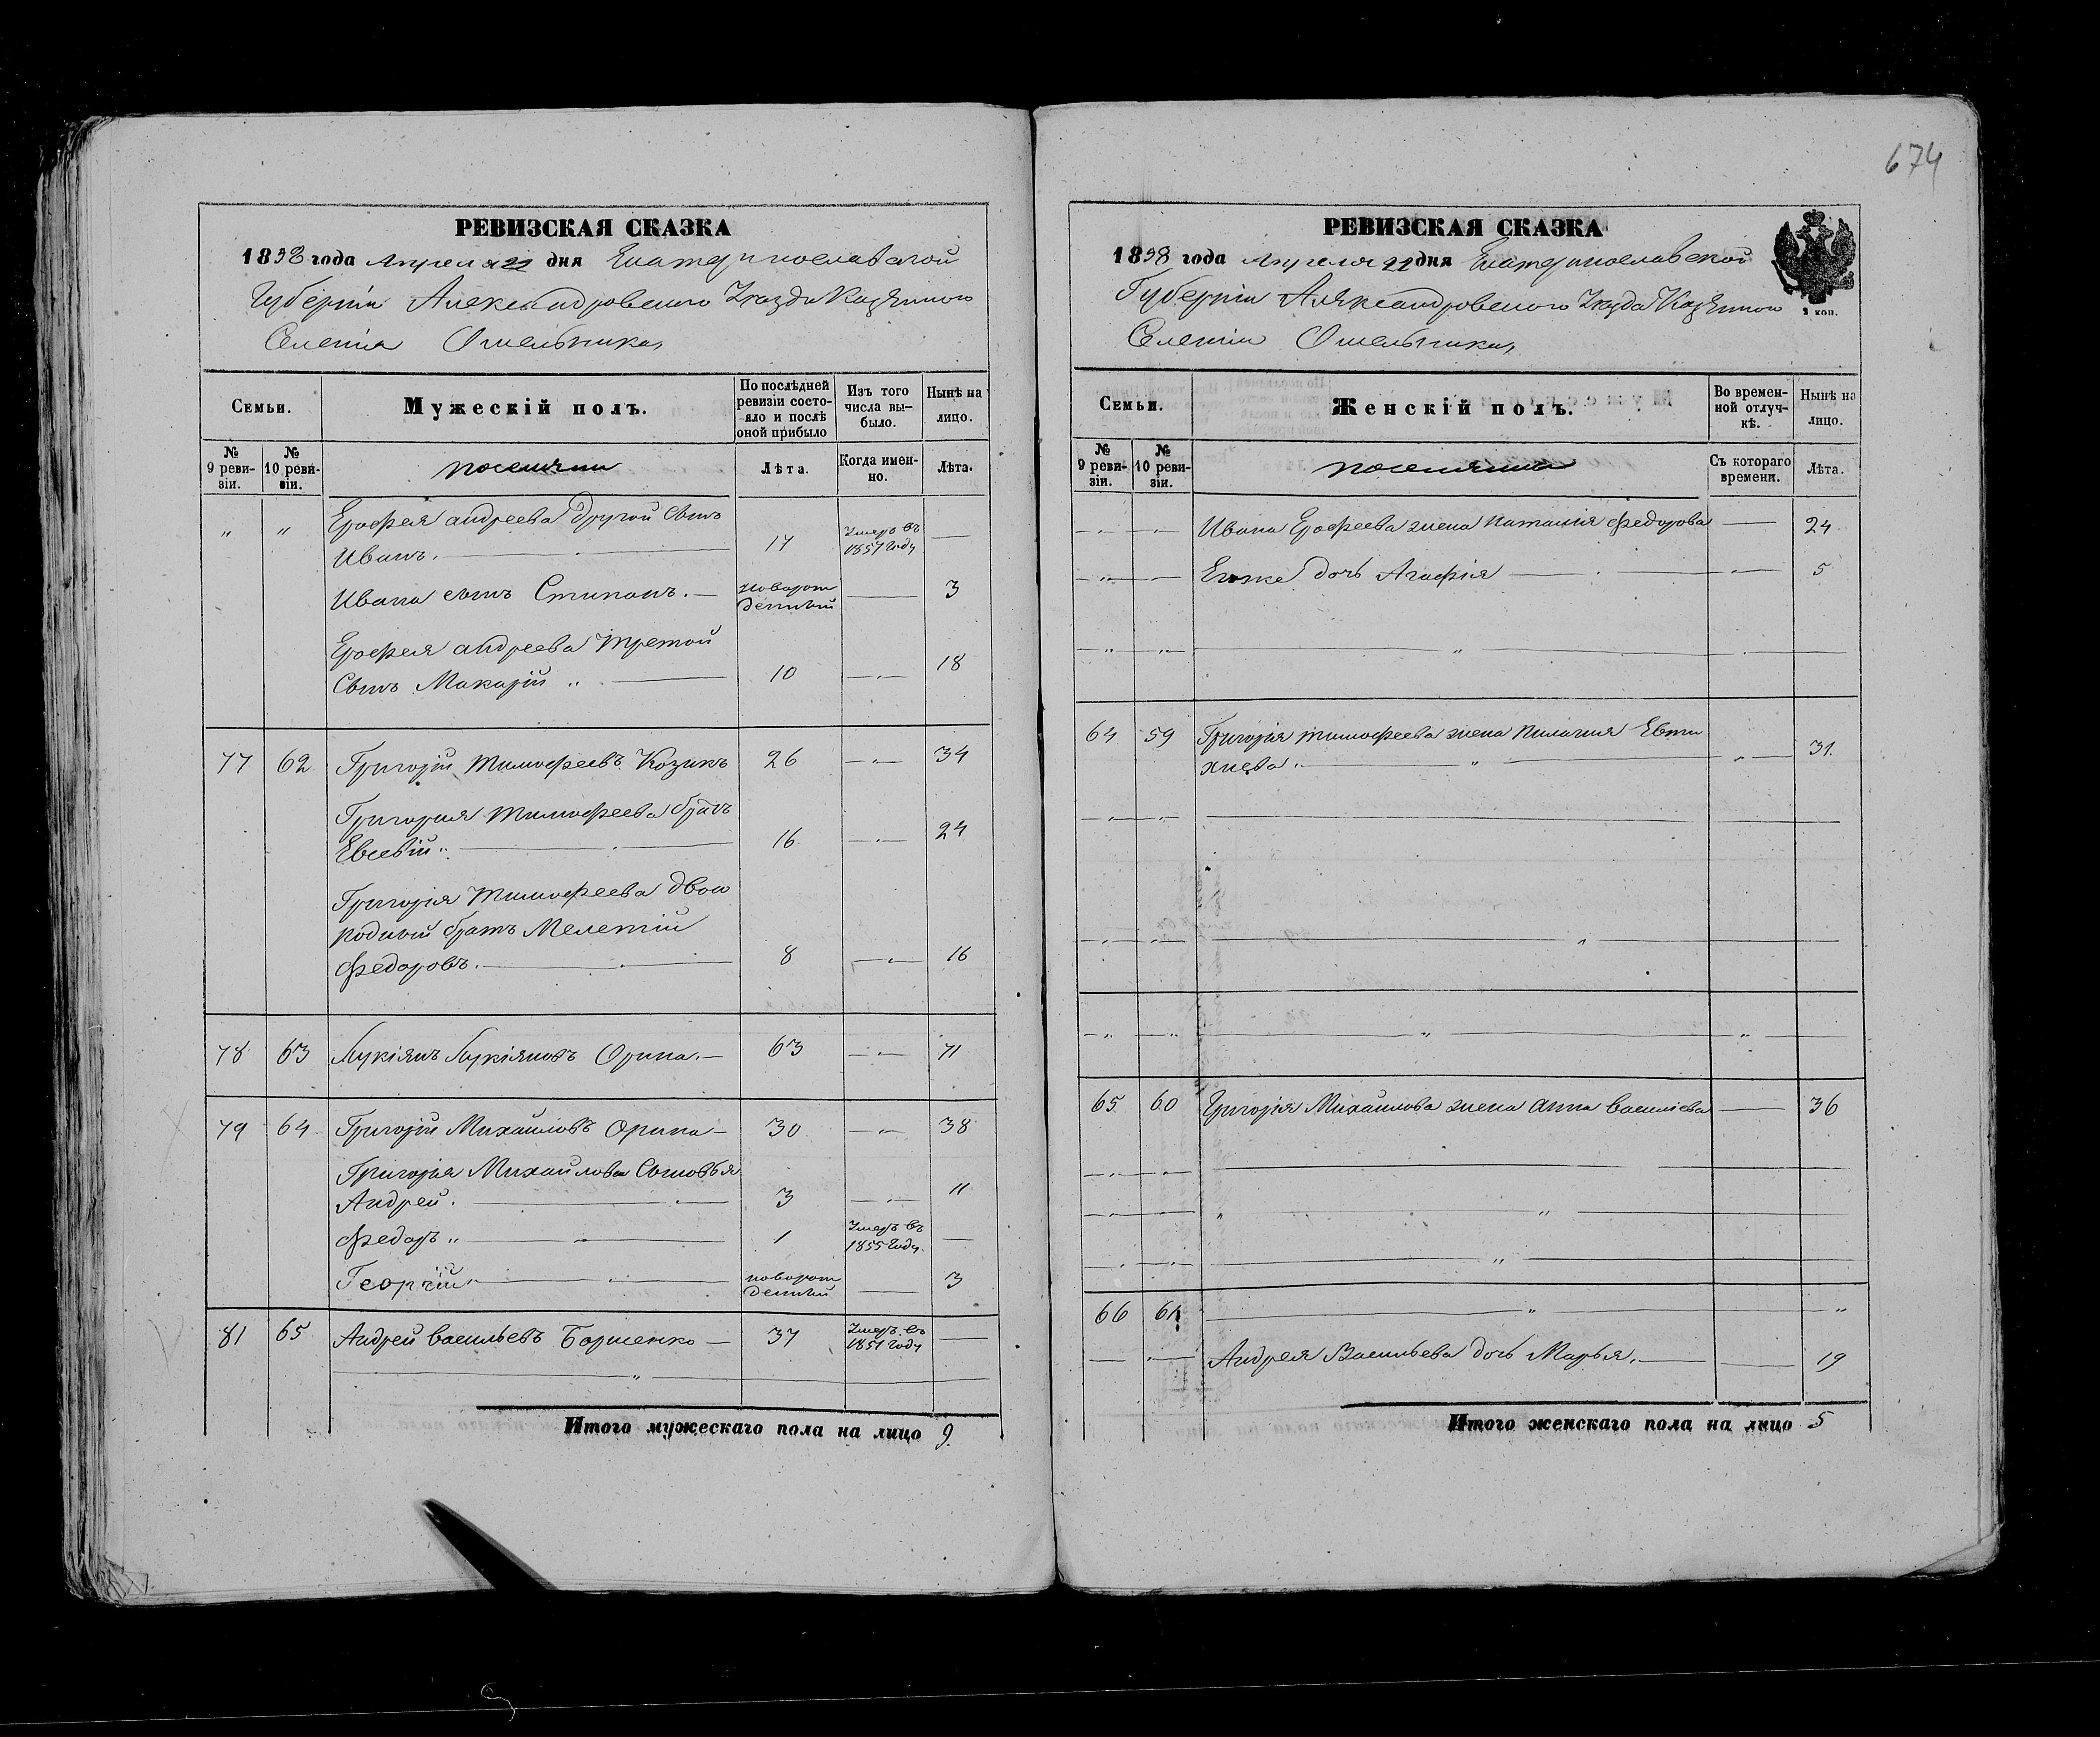 674
РЕВИЗСКАЯ СКАЗКА
1858 года Апреля 22 дня Екатеринославской
Губерніи Александровскаго Уезда Казеннаго
Селенія Омельника,
Семьи.
Мужескій полъ.
По послѣдней
ревизіи состо-
яло и послѣ
оной прибыло
Изъ того
числа вы-
было.
Нынѣ на
лицо.
№
9 реви-
зіи.
№
10 реви-
зіи.
поселяни
Лѣта.
Когда имен-
но.
Лѣта.
" " Ерофея андреева другой сынъ
Иванъ. 17 Умеръ въ 1857 году —
Ивана сынъ Стипанъ. — новорож денный — 3
Ерофея андреева третой
Сынъ Макарій " 10 — 18
77 62 Григорій Тимофеевъ Козикъ 26 — " — 34
Григория Тимофеева братъ
Евсевій. 16 — " — 24
Григорія Тимофеева двою
родный братъ Мелетій
Федоровъ. 8 — " — 16
78 63 Лукіянъ Лукіяновъ Орина. — 63 — " — 71
79 64 Григорій Михайловъ Орина — 30 — " — 38
Григорія Михайлова Сыновья
Андрей. 3 — " — 11
Федоръ " 1 Умеръ въ 1855 году. —
Георгій " новорож денный — 3
81 65 Андрей Васильевъ Борисенко — 37 Умеръ въ 1851 году —
Итого мужескаго пола на лицо 9.
РЕВИЗСКАЯ СКАЗКА
1858 года Апреля 22 дня Екатеринославской
Губерніи Александровскаго Уезда Казеннаго
2 коп.
Селенія Омельника,
Семьи.
Женскій полъ.
Во времен-
ной отлуч-
кѣ.
Нынѣ на
лицо.
№
9 реви-
зіи.
№
10 реви-
зіи.
поселянки
Съ котораго
времени.
Лѣта.
Ивана Ерофеева жена Наталия Федорова — 24
Егоже дочь Агафія — 5
64 59 Григорія Тимофеева жена Пилагия Евти
хиева. 31.
65. 60 Григорія Михайлова жена Анна Василиева — 36
66 61 "
Андрея Васильева дочь Марья. — 19
Итого женскаго пола на лицо 5